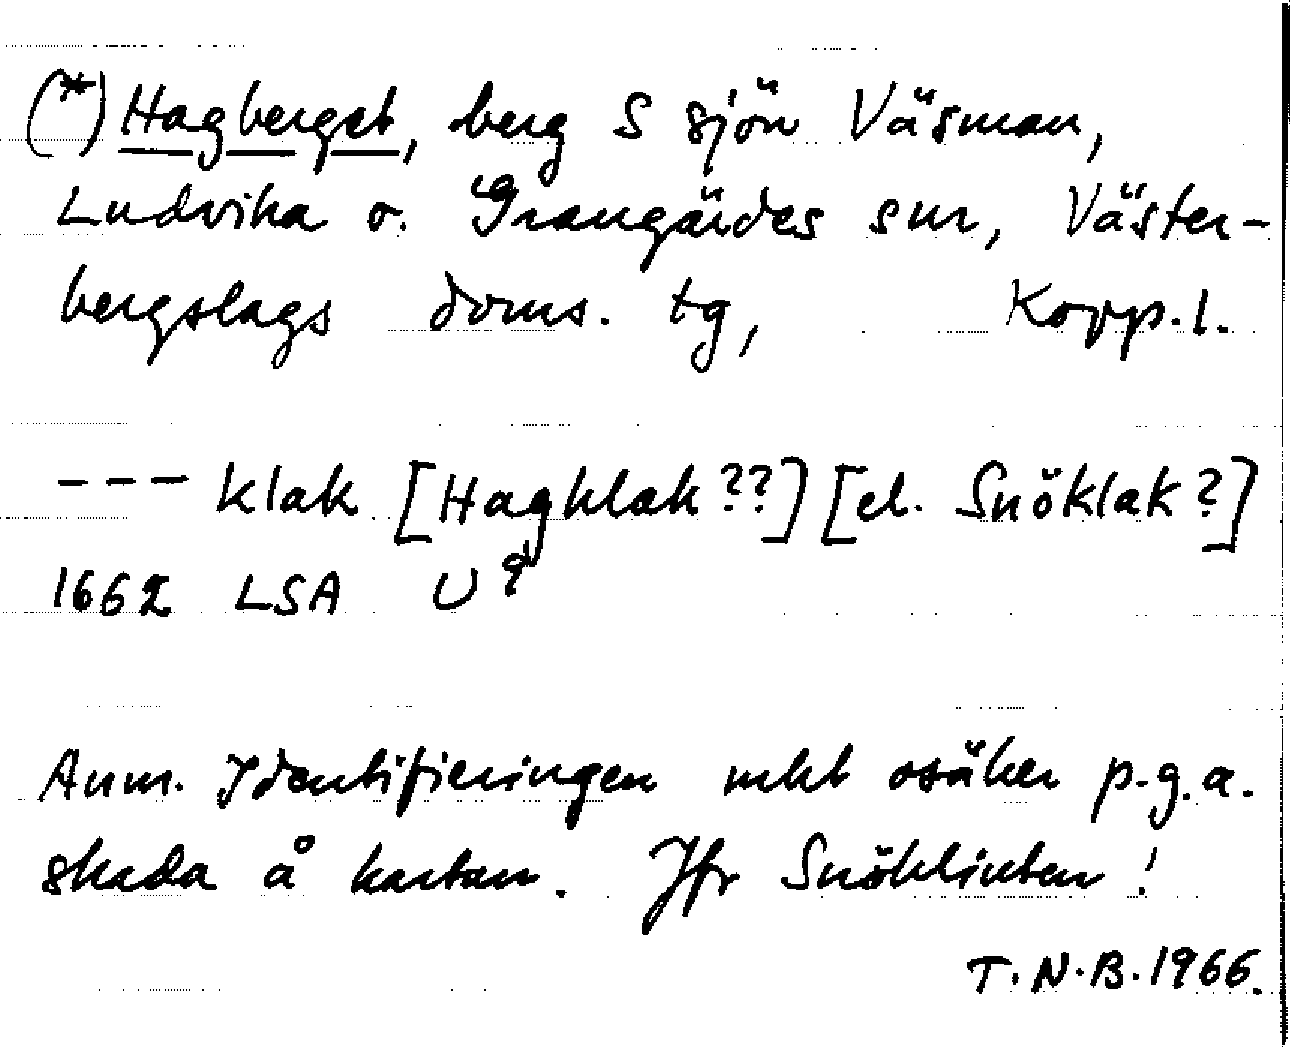 (*) Hagberget, berg S sjön Väsman,
Ludvika o. Grangärdes snr, Väster-
bergslags doms. tg, Kopp. l.
--- klak [Hagklak??] [el. Snöklak?]
1662 LSA U 9
Anm. Identifieringen mkt osäker p.g.a.
skada å kartan. Jfr Snöklinten!
T.N.B. 1966.